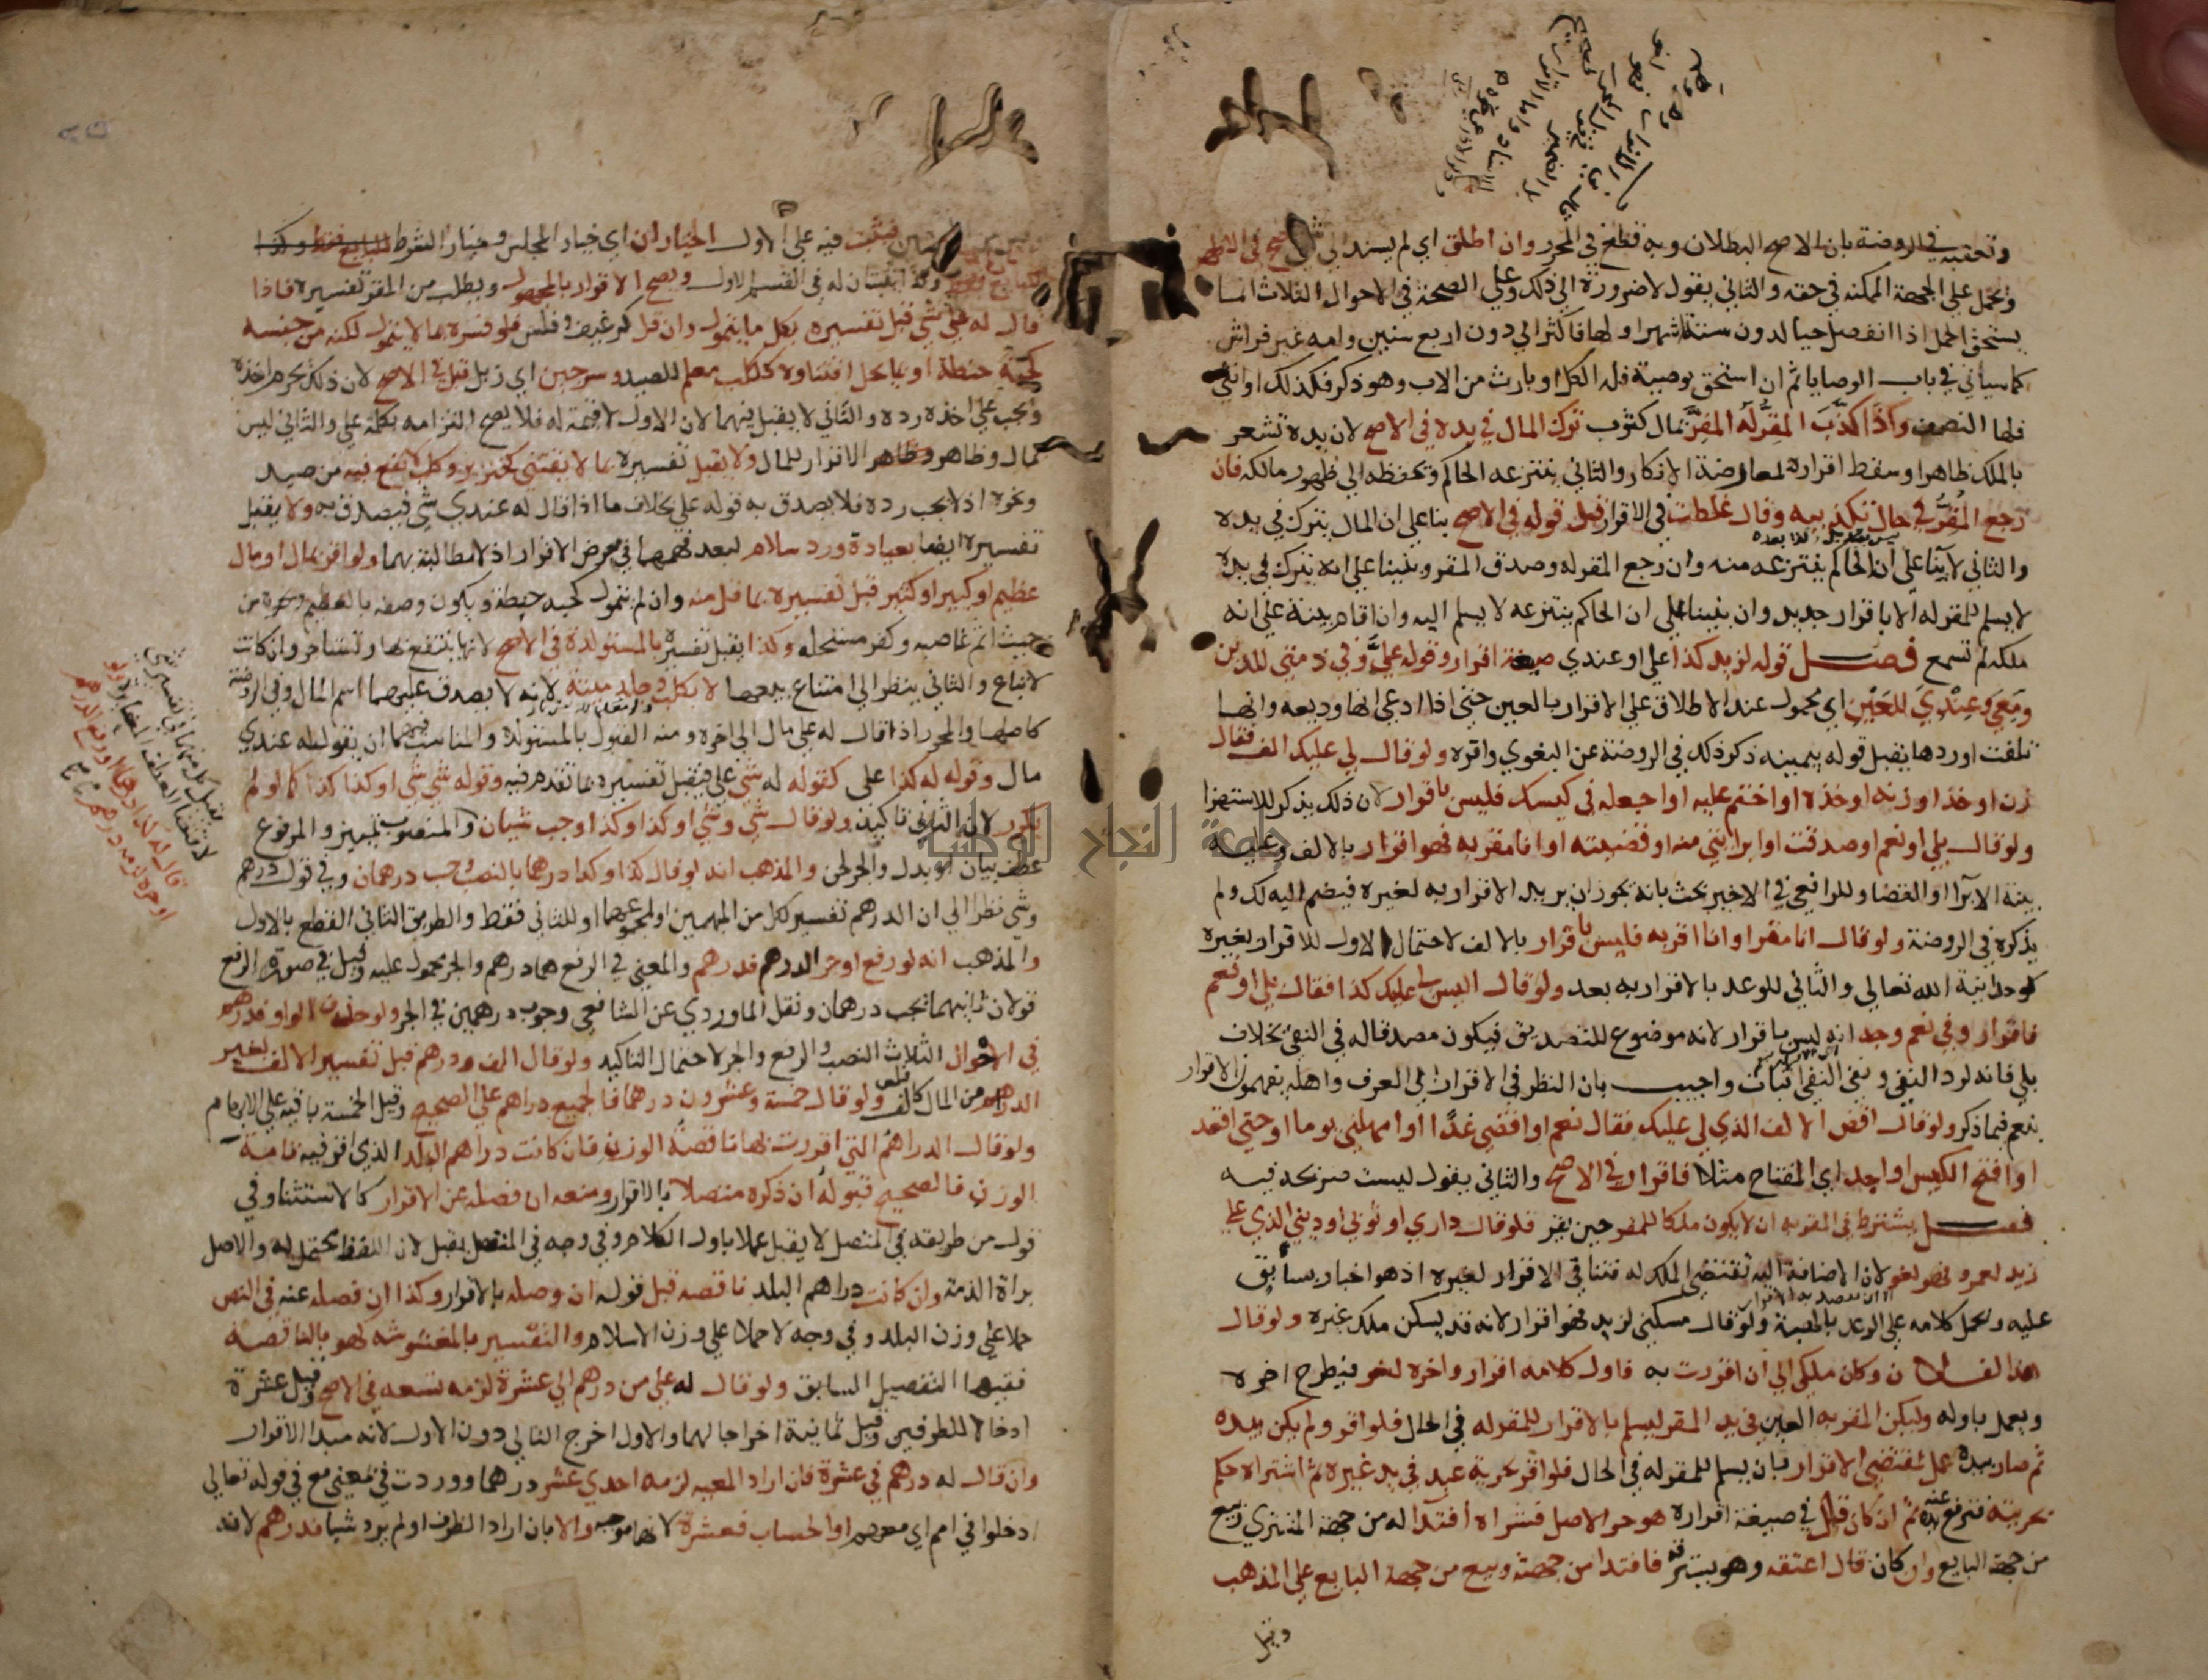 وتعقبه في الروضة بان الاصح البطلان وبه قطع في المحرر وان اطلق اي لم يسند الى شي صح في الاظهر
وتحمل على الجهة الممكنه في حقه والثاني يقول لا ضرورة الى ذلك وعلى الصحة في الاحوال الثلاث انما
يستحق الحمل اذا انفصل حيا لدون ستة اشهر او لها فاكثر الى دون اربع سنين وامه غير فراش
كما سياتي في باب الوصايا ثم ان استحق بوصية فله الكل او بارث من الاب وهو ذكر فكذلك او انثى
فلها النصف واذا كذب المقر له المقر بمال كثوب ترك المال في يده في الاصح لان يده تشعر
بالملك ظاهرا وسقط اقراره لمعارضة الانكار والثاني ينتزعه الحاكم وتحفظه الى ظهور مالكه فان
رجع المقر في حال تكذيبه وقال غلطت في الاقرار قبل قوله في الاصح بنا على ان المال يترك في يده
والثاني لا بنا على ان الحاكم ينتزعه منه وان رجع المقر له وصدق المقر وبنينا على انه يترك في يده
لا يسلم للمقر له الا باقرار جديد وان بنينا على ان الحاكم ينتزعه لا يسلم اليه وان اقام بينة على انه
ملكه لم تسمع فصل قوله لزيد كذا علي او عندي صيغة اقرار وقوله علي وفي ذمتي للدين
ومعي وعندي للعين اي محمول عند الاطلاق على الاقرار بالعين حتى اذا ادعى انها وديعه وانها
تلفت او ردها يقبل قوله بيمينه ذكر ذلك في الروضة عن البغوي واقره ولو قال لي عليك الف فقال
زن او خذ او زنه او خذه او اختم عليه او اجعله في كيسك فليس باقرار لان ذلك يذكر للاستهزا
ولو قال بلى او نعم او صدقت او ابراتني منه او قضيته او انا مقر به فهو اقرار بالالف وعليه
بينة الابرا او القضا وللرافعي في الاخير بحث بانه يجوز ان يريد الاقرار به لغيره فيضم اليه لك ولم
يذكره في الروضة ولو قال انا مقر او انا اقر به فليس باقرار بالالف لاحتمال الاول للاقرار بغيره
كوحدانية الله تعالى والثاني للوعد بالاقرار به بعد ولو قال اليس لي عليك كذا فقال بلى او نعم
فاقرار وفي نعم وجه انه ليس باقرار لانه موضوع للتصديق فيكون مصدقا له في النفي بخلاف
بلى فانه لرد النفي ونفي النفي اثبات واجيب بان النظر في الاقرار الى العرف واهله يفهمون الاقرار
بنعم فيما ذكر ولو قال اقض الالف الذي لي عليك فقال نعم او اقضي غدا او امهلني يوما او حتى اقعد
او افتح الكيس او اجد اي المفتاح مثلا فاقرار في الاصح والثاني يقول ليست صريحة فيه
فصل يشترط في المقر به ان لا يكون ملكا للمقر حين يقر فلو قال داري او ثوبي او ديني الذي على
زيد لعمرو فهو لغو لان الاضافة اليه تقتضي الملك له فتنافي الاقرار لغيره اذ هو اخبار بسابق
عليه وتحمل كلامه على الوعد بالهبة ولو قال مسكني لزيد فهو اقرار لانه قد يسكن ملك غيره ولو قال
هذا لفلان وكان ملكي الى ان اقررت به فاول كلامه اقرار واخره لغو فيطرح اخره
ويعمل باوله وليكن المقر به العين في يد المقر ليسلم بالاقرار للمقر له في الحال فلو اقر ولم يكن بيده
ثم صار بيده عمل بمقتضى الاقرار بان يسلم للمقر له في الحال فلو اقر بحرية عبد في يد غيره ثم اشتراه حكم
بحريته فترفع عنه يده ثم ان كان قال في صيغة اقراره هو حر الاصل فشراه افتدا له من جهة المشتري وبيع
من جهة البايع وان كان قال اعتقه وهو يسترقه فافتدا من جهته وبيع من جهة البايع على المذهب
وقيل
فيثبت فيه على الاول الخياران اي خيار المجلس وخيار الشرط للبايع فقط وكذا
يثبتان له في القسم الاول ويصح الاقرار بالمجهول ويطلب من المقر تفسيره فاذا
قال له علي شي قبل تفسيره بكل ما يتمول وان قل كرغيف وفلس فلو فسره بما لا يتمول لكنه من جنسه
كحبة حنطة او بما يحل اقتناوه ككلب معلم للصيد وسرجين اي زبل قبل في الاصح لان ذلك يحرم اخذه
ويجب على اخذه رده والثاني لا يقبل فيهما لان الاول لا قيمة له فلا يصح التزامه بكلمة علي والثاني ليس
بمال وظاهر الاقرار للمال ولا يقبل تفسيره بما لا يقتنى كخنزير وكلب لا نفع فيه من صيد
ونحوه اذ لا يجب رده فلا يصدق به قوله علي بخلاف ما اذا قال له عندي شي فيصدق به ولا يقبل
تفسيره ايضا بعيادة ورد سلام لبعد فهمهما في معرض الاقرار اذ لا مطالبة بهما ولو اقر بمال او مال
عظيم او كبير او كثير قبل تفسيره بما قل منه وان لم يتمول كحبة حنطة ويكون وصفه بالعظيم ونحوه من
حيث اثم غاصبه وكفر مستحله وكذا يقبل تفسيره بالمستولدة في الاصح لانها ينتفع بها وتستاجر وان كانت
لا تباع والثاني ينظر الى امتناع بيعها لا بكلب وجلد ميتة لانه لا يصدق عليهما اسم المال وفي الروضة
كاصلها والمحرر اذا قال له علي مال الى اخره ومنه القبول بالمستولدة والمناسب فيهما ان يقول له عندي
مال وقوله له كذا علي كقوله له شي علي فيقبل تفسيره بما تقدم فيه وقوله شي شي او كذا كذا كما لو لم
يكرر لان الثاني تاكيد ولو قال شي وشي او كذا وكذا وجب شيان والمنصوب تمييز والمرفوع
عطف بيان او بدل والجر لحن والمذهب انه لو قال كذا وكذا درهما بالنصب وجب درهمان وفي قول درهم
وشي نظرا الى ان الدرهم تفسير لكل من المبهمين او لمجموعهما او للثاني فقط والطريق الثاني القطع بالاول
والمذهب انه لو رفع او جر الدرهم فدرهم والمعنى في الرفع هما درهم والجر محمول عليه وقيل في صورة الرفع
قولان ثانيهما يجب درهمان ونقل الماوردي عن الشافعي وجوب درهمين في الجر ولو حذف الواو فدرهم
في الاحوال الثلاث النصب والرفع والجر لاحتمال التاكيد ولو قال الف ودرهم قبل تفسير الالف بغير
الدراهم من المال كالف فلس ولو قال خمسة وعشرون درهما فالجميع دراهم على الصحيح وقيل الخمسة باقية على الابهام
ولو قال الدراهم التي اقررت بها ناقصة الوزن فان كانت دراهم البلد الذي اقر فيه تامة
الوزن فالصحيح قبوله ان ذكره متصلا بالاقرار ومنعه ان فصله عن الاقرار كالاستثنا وفي
قول من طريقه في المتصل لا يقبل عملا باول الكلام وفي وجه في المنفصل يقبل لان اللفظ يحتمل له والاصل
براة الذمة وان كانت دراهم البلد ناقصه قبل قوله ان وصله بالاقرار وكذا ان فصله عنه في النص
حملا على وزن البلد وفي وجه لا حملا على وزن الاسلام والتفسير بالمغشوشه كهو بالناقصة
ففيها التفصيل السابق ولو قال له علي من درهم الى عشرة لزمه تسعه في الاصح وقيل عشرة
ادخالا للطرفين وقيل ثمانية اخراجا لهما والاول اخرج الثاني دون الاول لانه مبدا الاقرار
وان قال له درهم في عشرة فان اراد المعية لزمه احدى عشر درهما ووردت في بمعنى مع في قوله تعالى
ادخلوا في امم اي معهم او الحساب فعشرة لانها موجبه والا بان اراد الظرف او لم يرد شيا فدرهم لانه
جامعة النجاح الوطنية